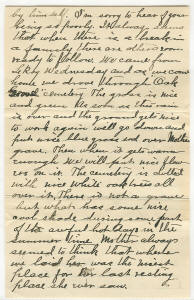 by himself. I'm sorry to hear of your
being so poorly. It always seems
that when there is a break in
a family there are others soon
ready to follow. We came from
Wednesday and as we came
home we drove through Oak
Grove cemetery. The grass is nice
and green. As soon as this rain
is over and the ground gets nice
to work again will go down and
put nice blue grass sod over Mother
grave. Then when it gets warm
enough we will put nice flowers
on it. The cemetery is dotted
with nice White oak trees all
over it. There is not a grave
but what has some nice
cool shade during some part
of the awful hot days in the
summer time. Mother always
seemed to think that where
we laid her was the nicest
place for her last resting
place she ever saw.